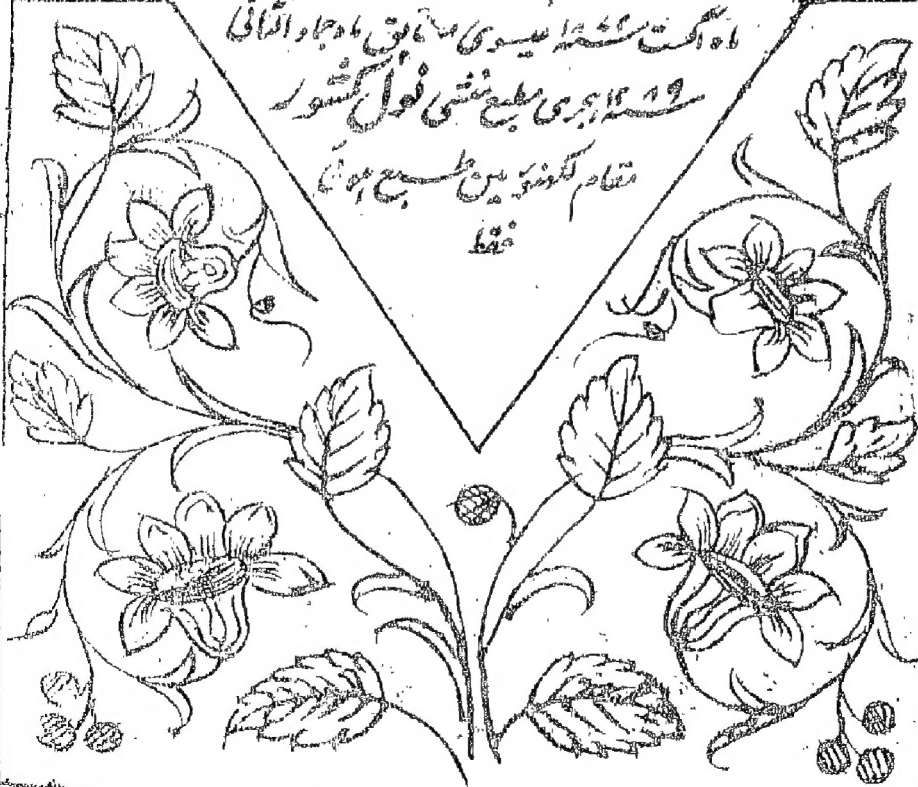 ماہ اگست عیسوی مطابق ماہ جماد الثانی
سنہ ۱۲۸۹ ہجری مطبع منشی نول کشور
مقام لکھنؤ میں طبع ہوئی
فقط